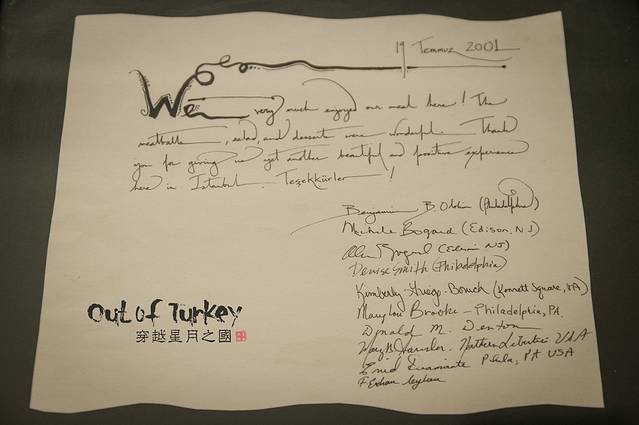 Temmuz 2001
We very much enjoyed our meal here! The
meatballs, salad, and dessert were wonderful. Thank
you for giving us yet another beautiful and positive experience
here in Istanbul. Teşekkürler!
Benjamin B. (Philadelphia)
Michele Bogard (Edison, NJ)
(Edison NJ)
Denise Smith (Philadelphia)
Kimberly (Kennett Square, PA)
Mary Lou Brooke - Philadelphia, PA.
Donald M. Denton
USA
Enid Phila, PA USA
Out of Turkey
穿越星月之國